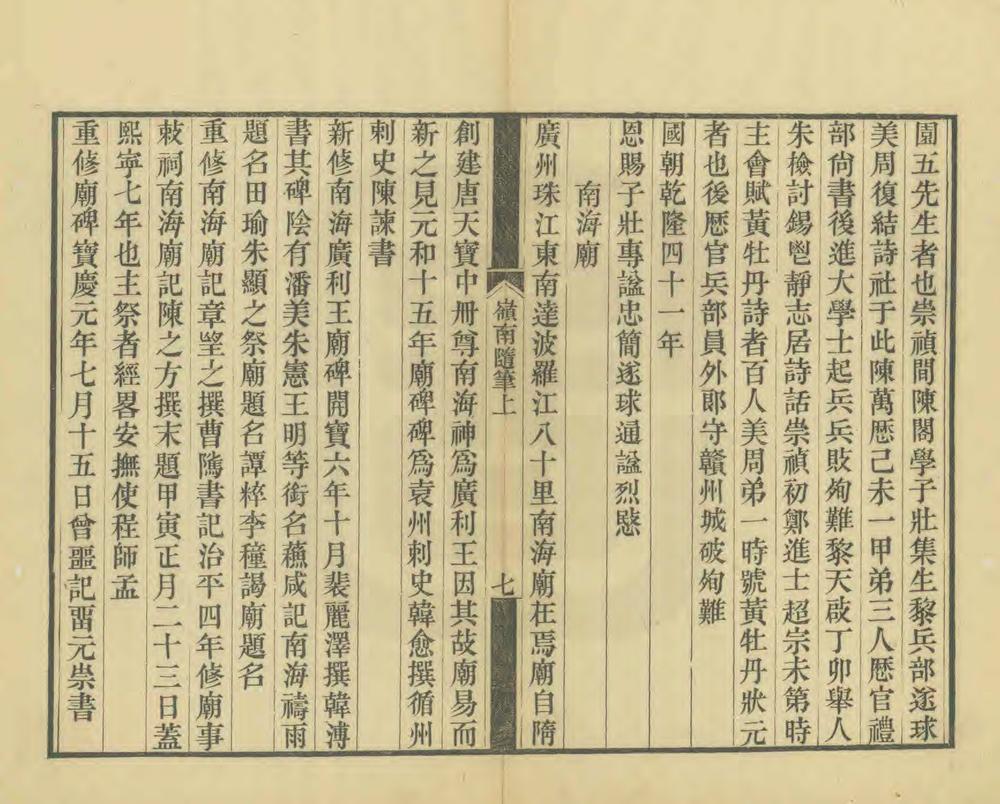 園五先生者也崇禎間陳閣學子壯集生黎兵部遂球
美周復結詩社于此陳萬厯己未一甲弟三人厯官禮
部尙書後進大學士起兵兵敗殉難黎天啟丁卯舉人
朱檢討錫鬯靜志居詩話崇禎初鄭進士超宗未第時
主會賦黃牡丹詩者百人美周弟一時號黃牡丹狀元
者也後厯官兵部員外郞守贛州城破殉難
國朝乾隆四十一年
恩賜子壯專諡忠簡遂球通諡烈愍
南海廟
廣州珠江東南達波羅江八十里南海廟在焉廟自隋
嶺南隨筆上
七
創建唐天寶中冊尊南海神爲廣利王因其故廟易而
新之見元和十五年廟碑碑爲袁州刺史韓愈撰循州
刺史陳諫書
新修南海廣利王廟碑開寶六年十月裴麗澤撰韓溥
書其碑陰有潘美朱憲王明等銜名蘓咸記南海禱雨
題名田瑜朱顯之祭廟題名譚粹李穜謁廟題名
重修南海廟記章望之撰曹隲書記治平四年修廟事
敕祠南海廟記陳之方撰末題甲寅正月二十三日蓋
熙寧七年也主祭者經畧安撫使程師孟
重修廟碑寶慶元年七月十五日曾噩記畱元崇書